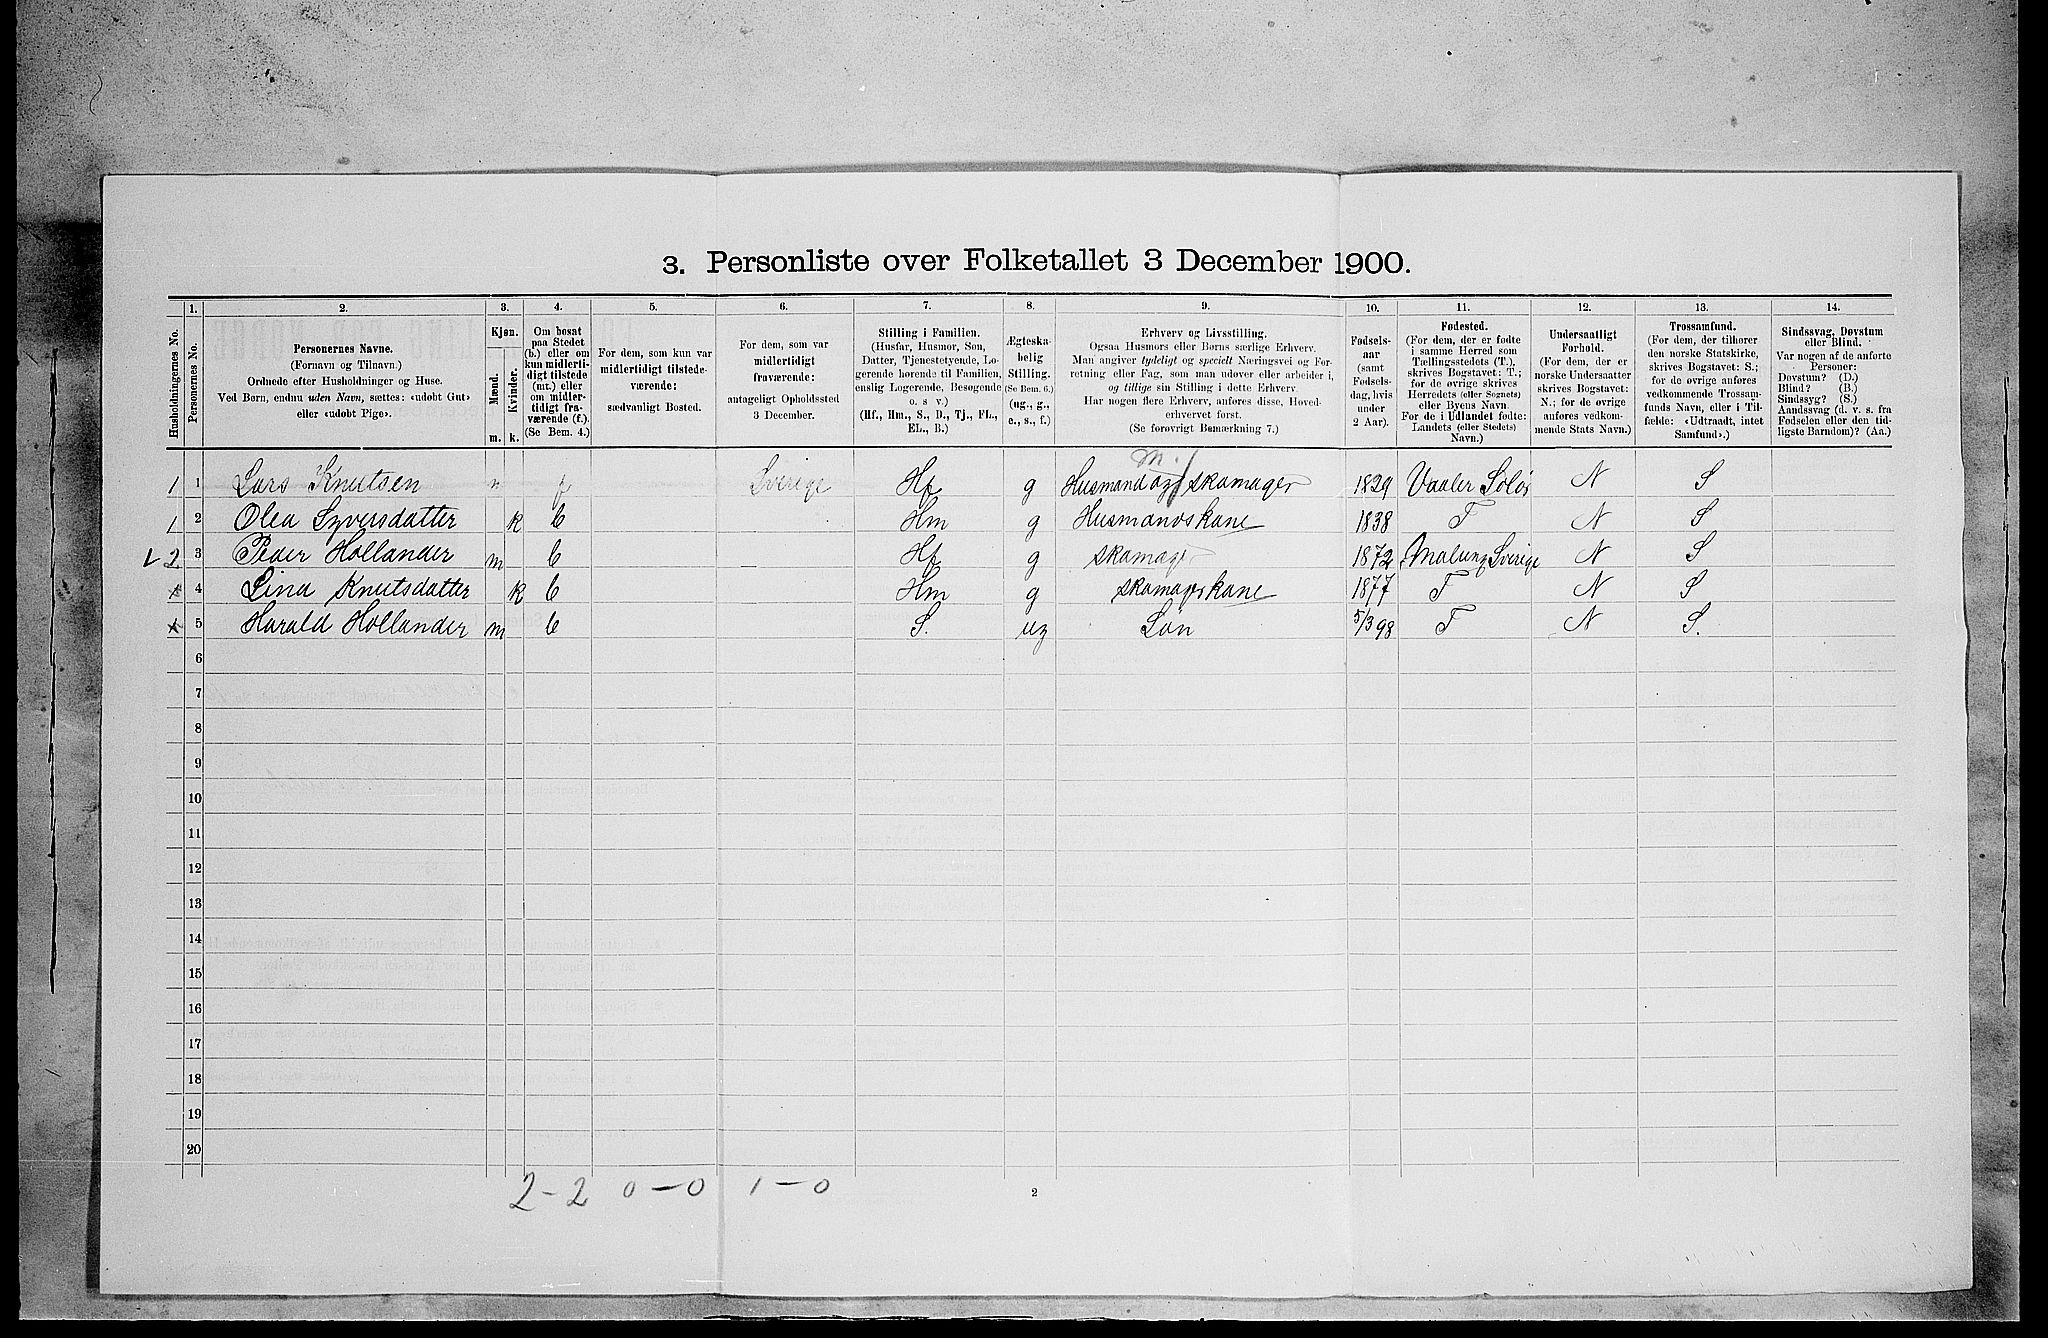 3. Personliste over Folketallet 3 December 1900.
1. 2. 3. 4. 5. 6. 7. 8. 9. 10. 11. 12. 13. 14.
Husholdningernes No.
Personernes No.
Personernes Navne.
(Fornavn og Tilnavn.)
Ordnede efter Husholdninger og Huse.
Ved Børn, endnu uden Navn, sættes: «udøbt Gut»
eller «udøbt Pige».
Kjøn.
Mænd.
Kvinder.
m. k.
Om bosat
paa Stedet
(b.) eller om
kun midlerti-
digt tilstede
(mt.) eller
om midler-
tidigt fra-
værende (f.).
(Se Bem. 4.)
For dem, som kun var
midlertidigt tilstede-
værende:
sædvanligt Bosted.
For dem, som var
midlertidigt
fraværende:
antageligt Opholdssted
3 December.
Stilling i Familien.
(Husfar, Husmor, Søn,
Datter, Tjenestetyende, Lo-
gerende hørende til Familien,
enslig Logerende, Besøgende
o. s v.)
(Hf., Hm., S., D., Tj., FL.,
EL., B.)
Ægteska-
belig
Stilling.
(Se Bem. 6.)
(ug., g.,
e., s., f.)
Erhverv og Livsstilling.
Ogsaa Husmors eller Børns særlige Erhverv.
Man angiver tydeligt og specielt Næringsvei og For-
retning eller Fag, som man udøver eller arbeider i,
og tillige sin Stilling i dette Erhverv.
Har nogen flere Erhverv, anføres disse, Hoved-
erhvervet først.
(Se forøvrigt Bemærkning 7.)
Fødsels-
aar
(samt
Fødsels-
dag, hvis
under
2 Aar).
Fødested.
(For dem, der er fødte
i samme Herred som
Tællingsstedets (T.),
skrives Bogstavet: T.;
for de øvrige skrives
Herredets (eller Sognets)
eller Byens Navn.
For de i Udlandet fødte:
Landets (eller Stedets)
Navn.)
Undersaatligt
Forhold.
(For dem, der er
norske Undersaatter
skrives Bogstavet:
N.; for de øvrige
anføres vedkom-
mende Stats Navn.)
Trossamfund.
(For dem, der tilhører
den norske Statskirke,
skrives Bogstavet: S.;
for de øvrige anføres
vedkommende Trossam-
funds Navn, eller i Til-
fælde: «Udtraadt, intet
Samfund».)
Sindssvag, Døvstum
eller Blind.
Var nogen af de anførte
Personer:
Døvstum? (D.)
Blind? (B.)
Sindssyg? (S.)
Aandssvag (d. v. s. fra
Fødselen eller den tid-
ligste Barndom)? (Aa.)
1 1 Lars Knutsen m f Sverige Hf g Husmand og skomager 1829 Vaaler Solør N S
1 2 Olea Syversdatter k b Hm g Husmandskone 1838 T N S
2 3 Peder Hollander m b Hf g skomager 1872 Malung Sverige N S
4 Lina Knutsdatter k b Hm g skomagerskone 1877 T N S
5 Harald Hollander m b S. ug Søn 5/3 98 T N S.
6
7
8
9
10
11
12
13
14
15
16
17
18
19
20
2-2 0-0 1-0
2